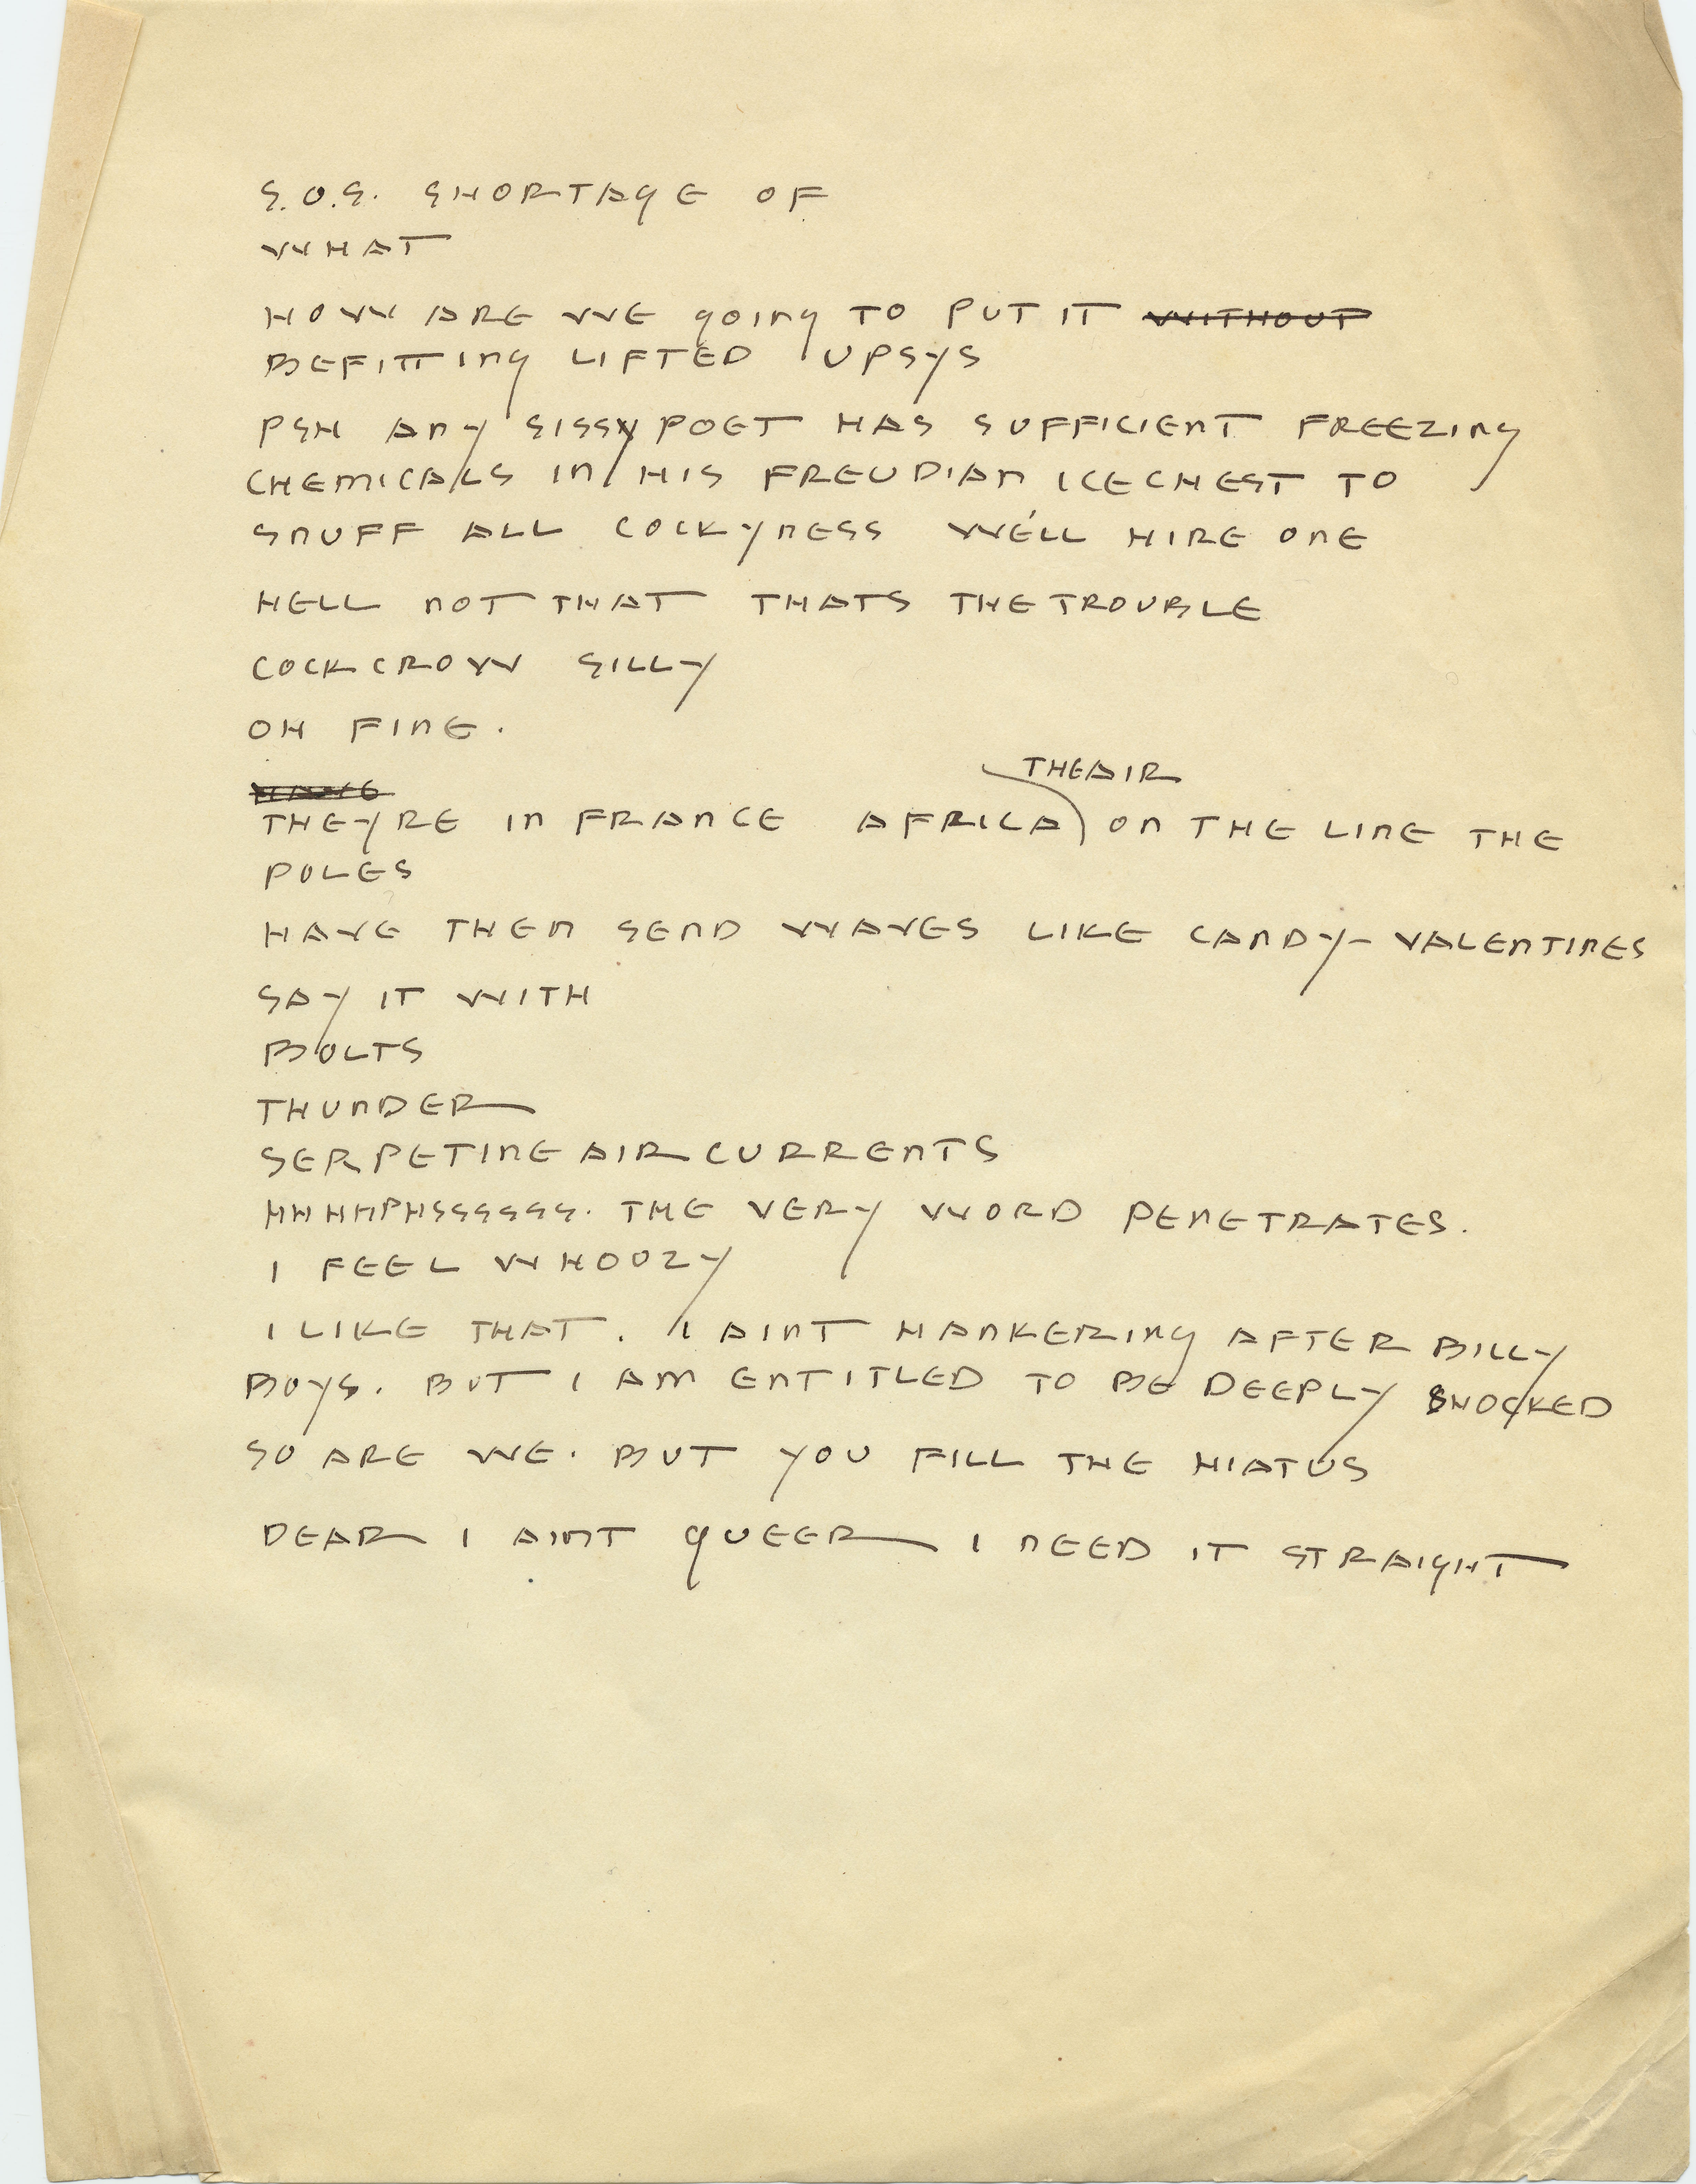 S.O.S. SHORTAGE OF
WHAT
HOW ARE WE going TO PUT IT WITHOUT
BEFITTIng LIFTED UPSYS
PSH Any SISSY POET HAS SUFFICIEnT FREEZIng
CHEMICALS In HIS FREUDIAn ICECHEST TO
SnUFF ALL COCKYnESS WE'LL HIRE OnE
HELL nOT THAT THATS THE TROUBLE
COCKCROW SILLY
OH FInE.
THE AIR
THEYRE In FRAnCE AFRICA On THE LInE THE
POLES
HAVE THEm SEnD WAVES LIKE CAnDY-VALEnTInES
SAY IT WITH
BOLTS
THUnDER
SERPETInE AIRCURREnTS
HHHHPHSSSSSS. THE VERY WORD PEnETRATES.
I FEEL WHOOZY
I LIKE THAT. I AInT HAnKERIng AFTER BILLY
BOYS. BUT I AM EnTITLED TO BE DEEPLY SHOCKED
SO ARE WE. BUT YOU FILL THE HIATUS
DEAR I AInT QUEER I nEED IT STRAIGHT